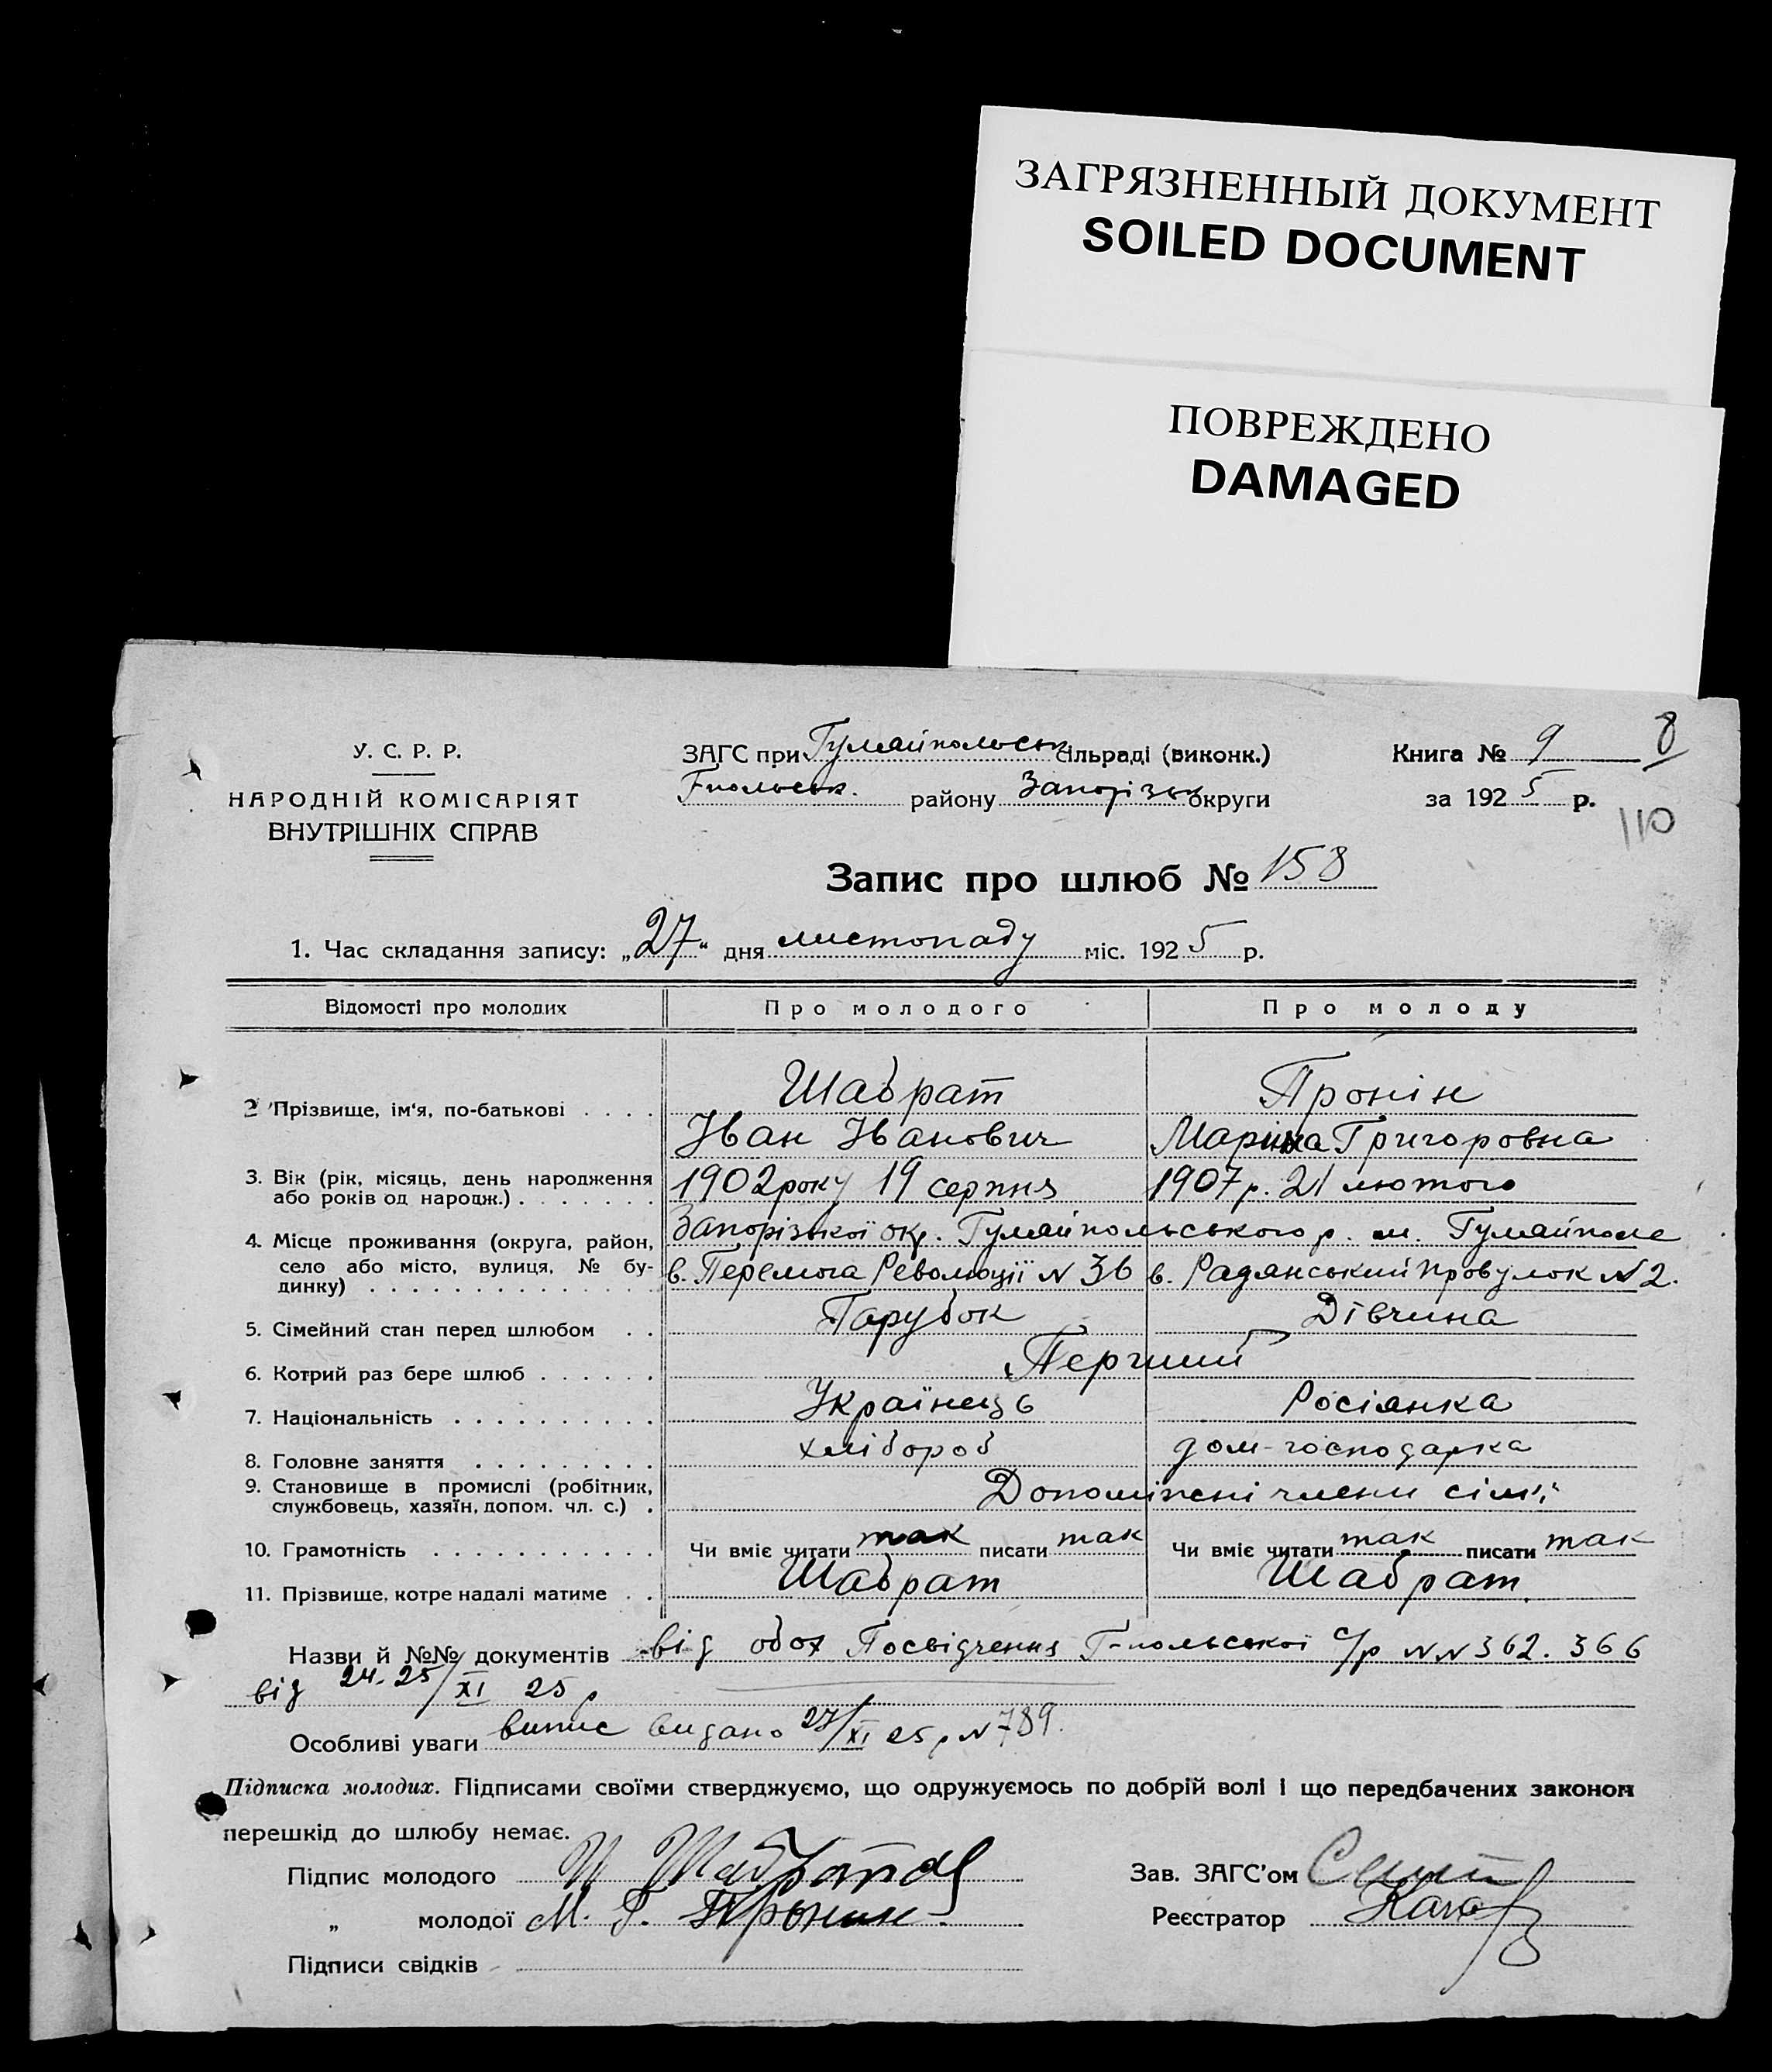 ЗАГРЯЗНЕННЫЙ ДОКУМЕНТ
SOILED DOCUMENT
ПОВРЕЖДЕНО
DAMAGED
У. С. Р. Р.
НАРОДНІЙ КОМІСАРІЯТ
ВНУТРІШНІХ СПРАВ
ЗАГС при Гуляйпольськ сільраді (виконк.)
Гпольськ. району Запорізьк округи
Книга № 9
8
за 1925 р.
110
Запис про шлюб № 158
1. Час складання запису: „27" дня листопаду міс. 1925 р.
Відомості про молодих Про молодого Про молоду
2 Прізвище, ім'я, по-батькові . . . . Шабрат Пронін
Іван Іванович Маріна Григоровна
3. Вік (рік, місяць, день народження
або років од народж.) . . . . . . . 1902 року 19 серпня 1907 р. 21 лютого
4. Місце проживання (округа, район, Запорізької окр. Гуляйпольського р. м. Гуляйполе
село або місто, вулиця, № бу-
динку) . . . . . . . . . . . . . . в. Перемога Революції N 36 в. Радянський провулок N 2.
5. Сімейний стан перед шлюбом . . Парубок Дівчина
6. Котрий раз бере шлюб . . . . . . Перший
7. Національність . . . . . . . . . . Українець Росіянка
8. Головне заняття . . . . . . . . . хлібороб дом-господарка
9. Становище в промислі (робітник,
службовець, хазяїн, допом. чл. с.) . члени сім'ї
10. Грамотність . . . . . . . . . . . Чи вміє читати так писати так Чи вміє читати так писати так
11. Прізвище, котре надалі матиме . . Шабрат Шабрат.
Назви й №№ документів від обох Посвідчення Г-польської с/р NN 362. 366
від 24-25/XI 25 р
Особливі уваги випис видано 27/XI 25 р N 789.
Підписка молодих. Підписами своїми стверджуємо, що одружуємось по добрій волі і що передбачених законом
перешкід до шлюбу немає.
Підпис молодого И Шабрат
Зав. ЗАГС'ом
„ молодої М. Г. Пронин
Реєстратор
Підписи свідків